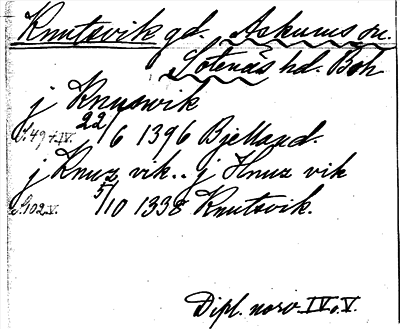 Knutsvik gd. Askums sn.
Sotenäs hd. Boh
j Knuswik
s. 49 t. IV. 22/6 1396 Bjelland.
j Knuz vik.. j Hnuz vik
s. 102 V. 5/10 1338 Knutsvik.
Dipl. norv. IV o. V.